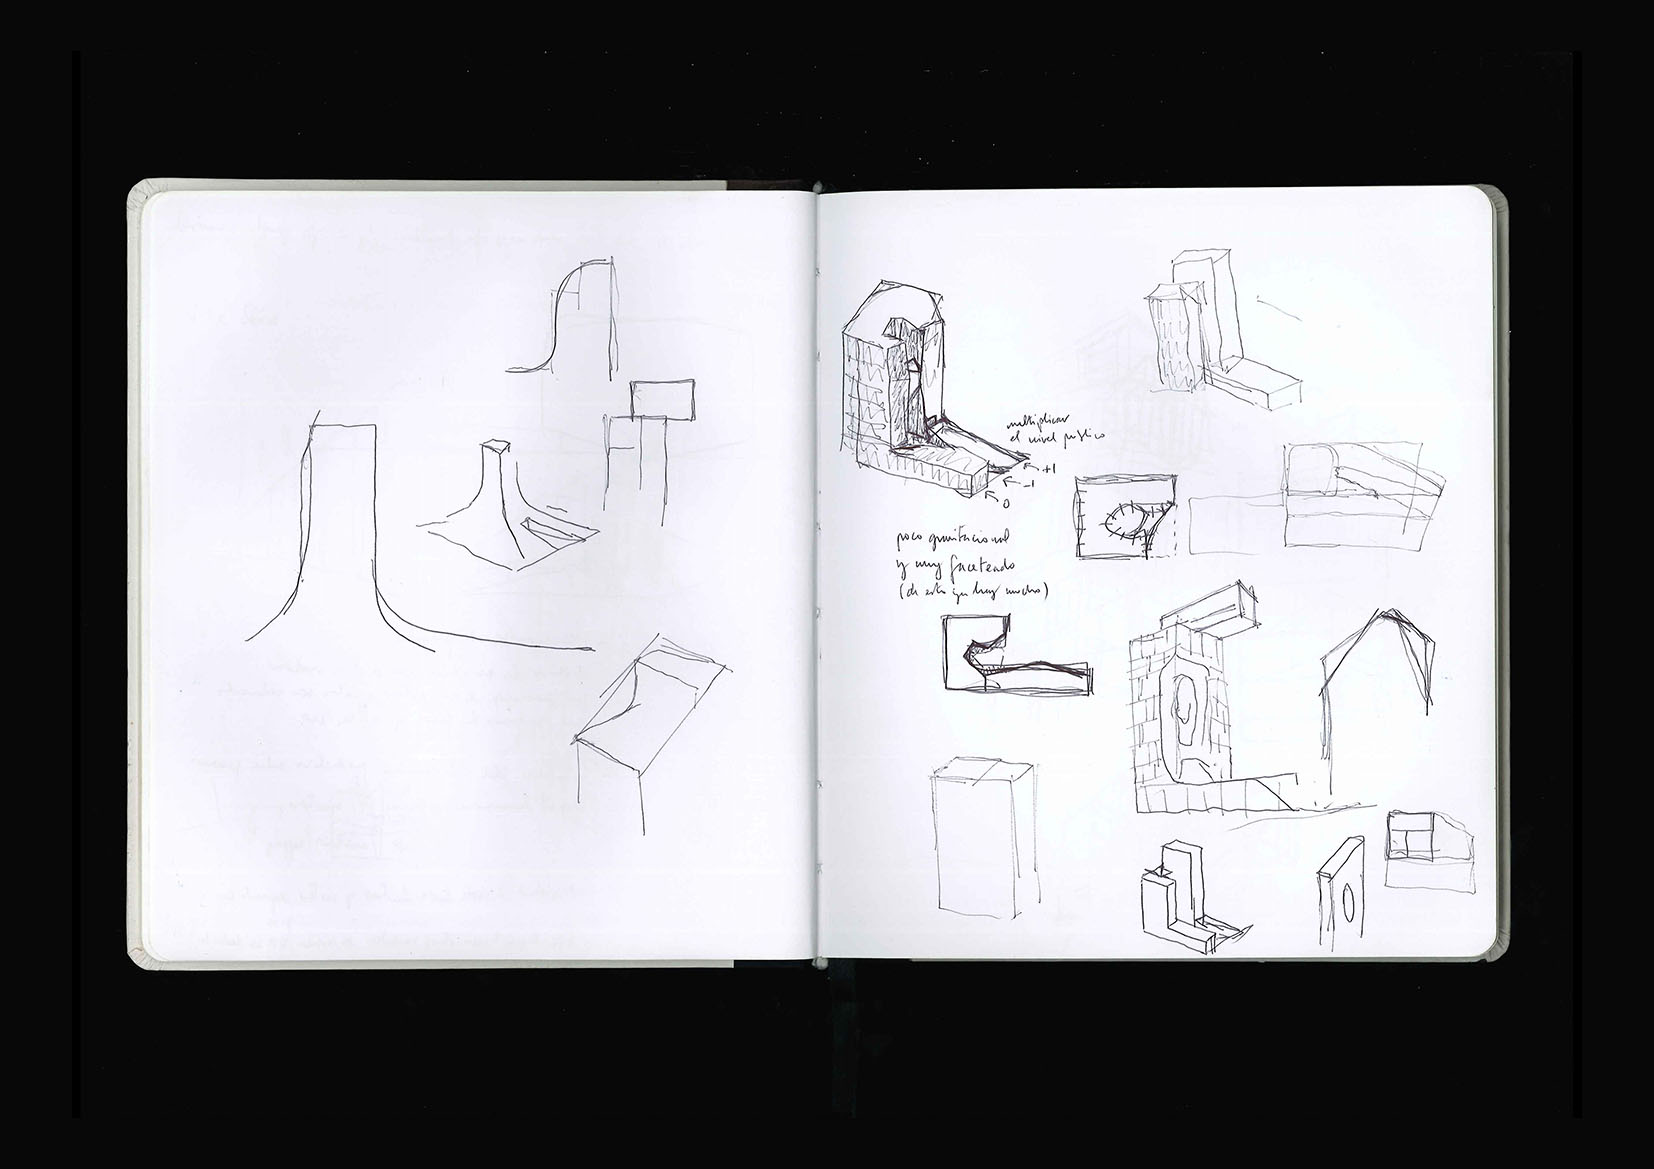 multiplicar
el nivel público
+1
-1
0
poco gravitacional
y muy faceteado
(de esto ya hay mucho)